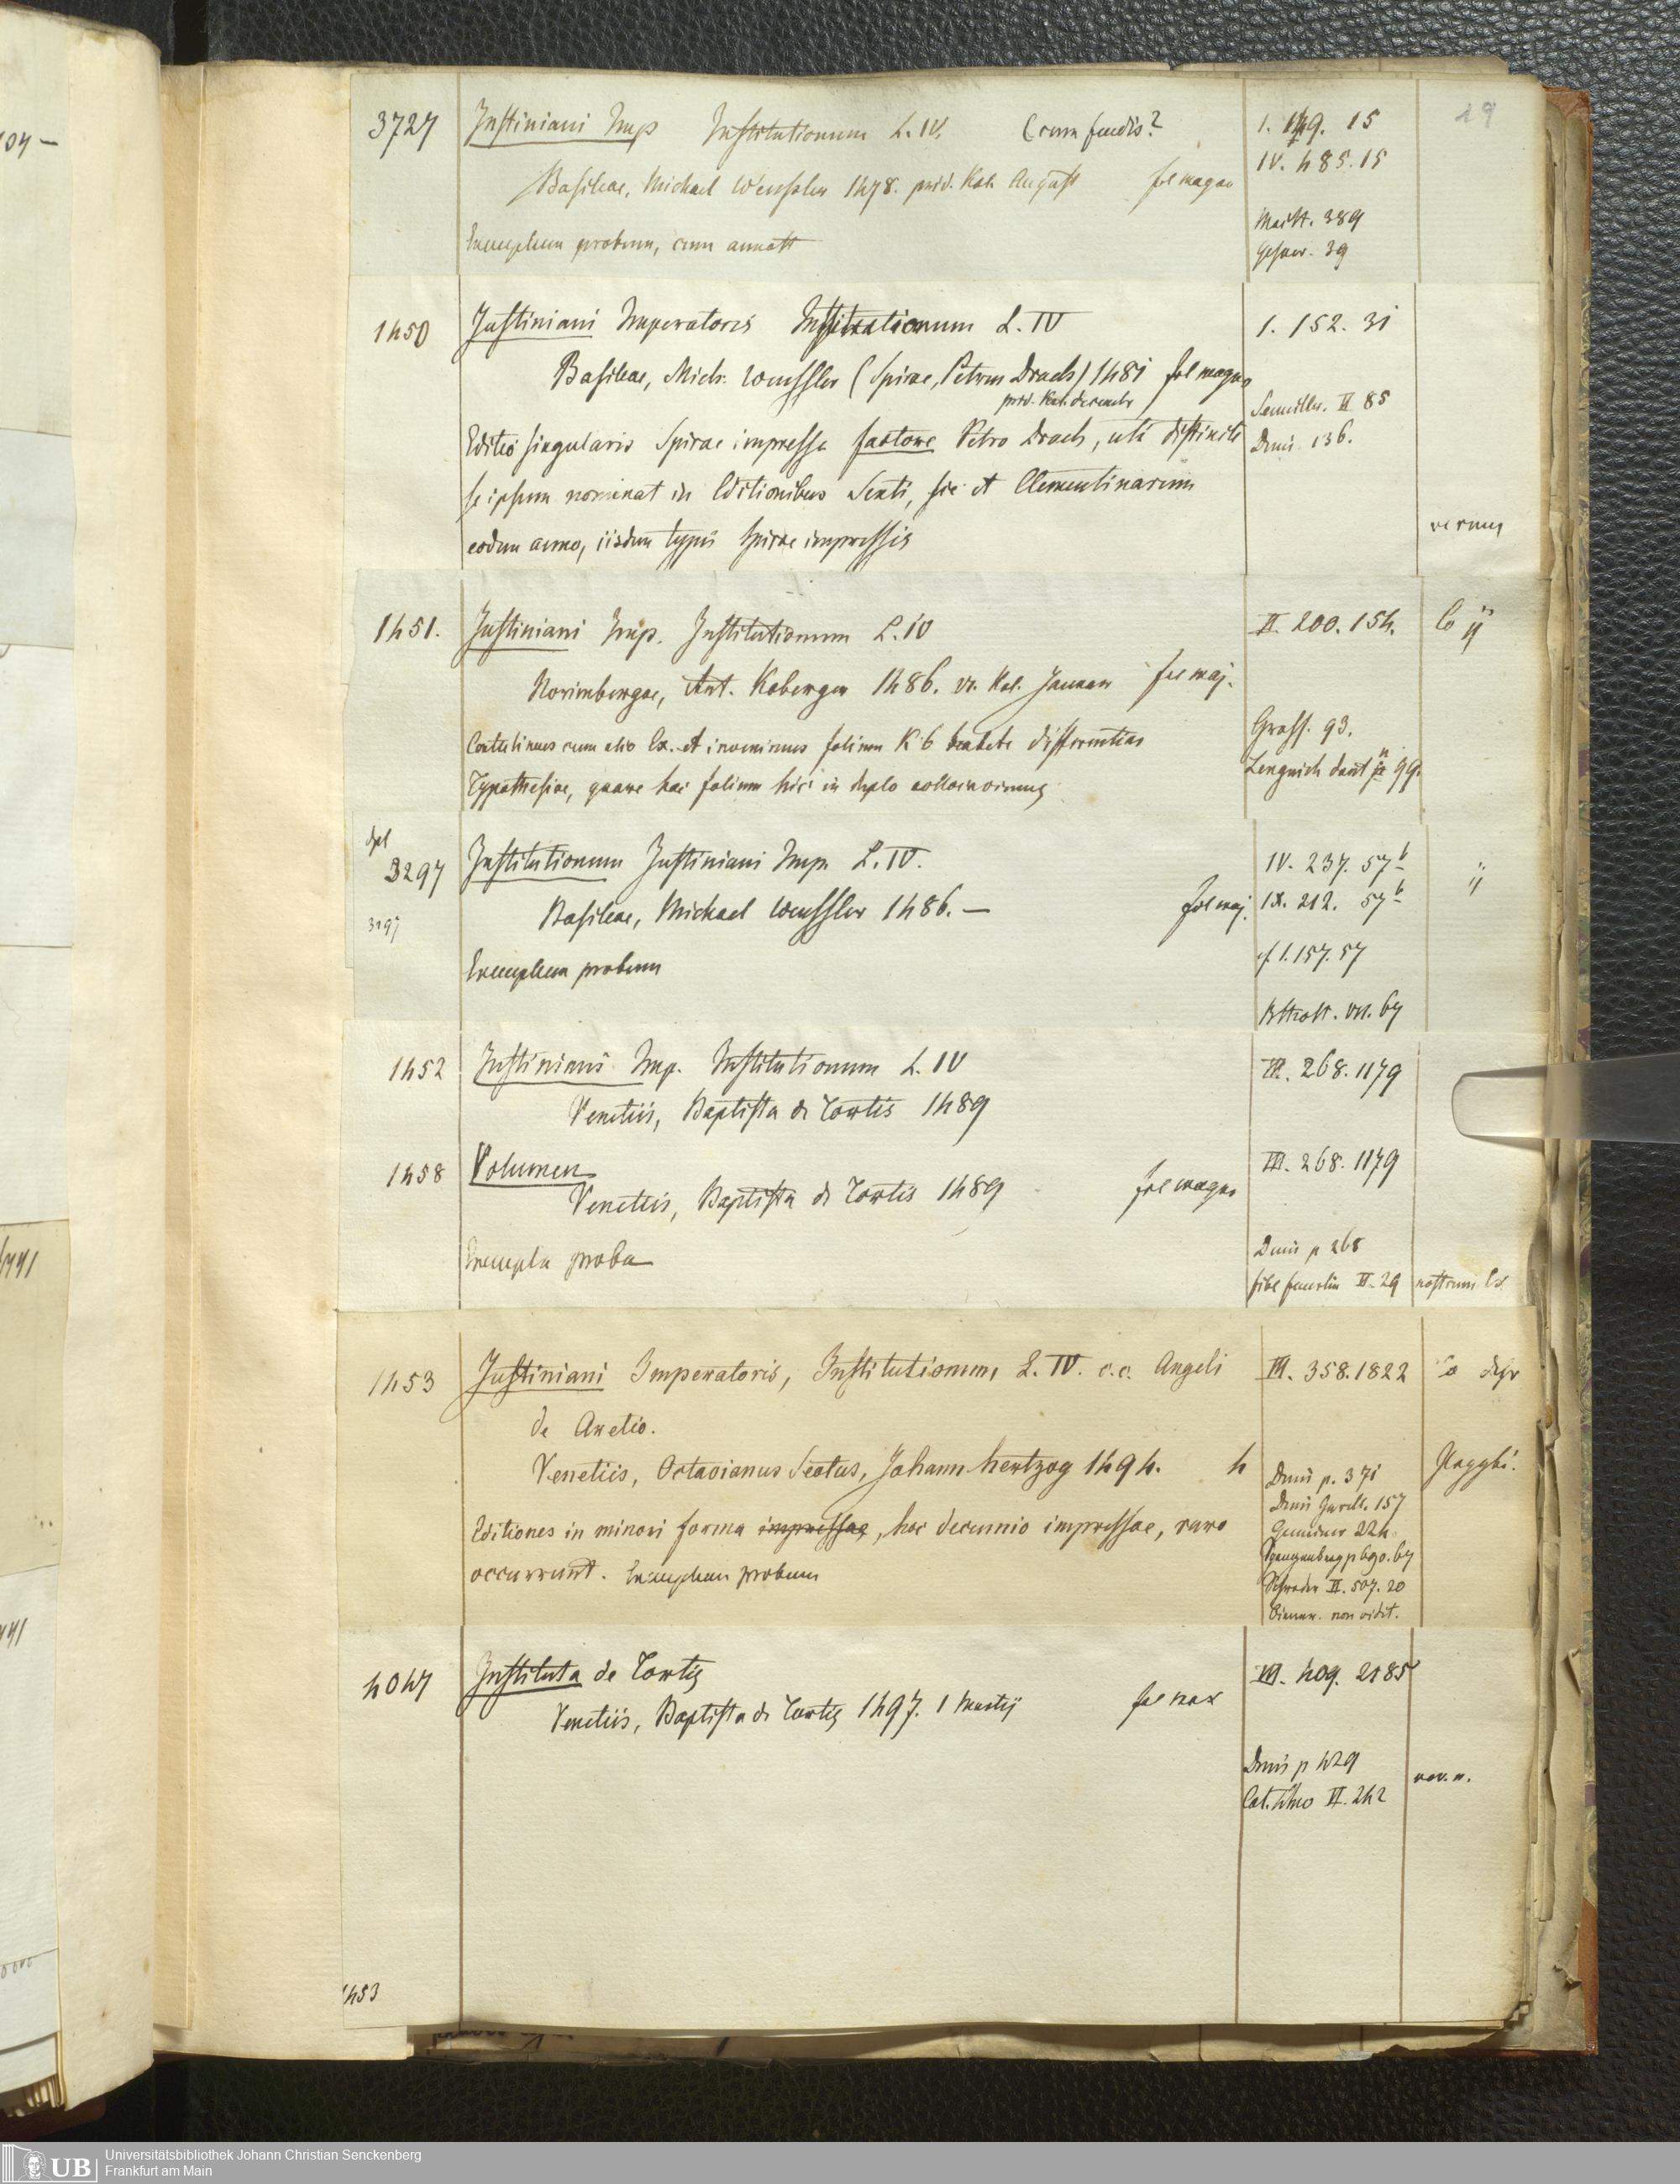 29
3727 Justiniani Imp Institutionum L. IV. (cum feudis?
I. 149. 15
IV. 485. 15
Basileae, Michael Wenssler 1478. prid. Kal. August fol magno
Maitt. 389
Gesner. 39
Exemplum probum, cum annott
1450 Justiniani Imperatoris Institutionum L. IV
I. 152. 31
Basileae, Mich. Wenssler (Spirae, Petrus Drach) 1481 fol magno
prid. Kal. decembr
Seemiller. II 85
Denis. 136.
Editio singularis Spirae impressa factore Petro Drach, uti distincte
se ipsum nominat in Editionibus Sexti, sic et Clementinarum
eodem anno, iisdem typis Spirae impressis
1451. Justiniani Imp. Institutionum L. IV
II. 200. 154.
Co ij
Norimbergae, Ant. Koberger 1486. VI. Kal. Januar fol maj.
Contulimus cum alio Ex. et invenimus folium K 6
differentias
Typothesiae, quare hoc folium hic in duplo collocavimus
Grass. 93.
Lengnich
99.
dpl
3297 Institutionum Justiniani Imp. L. IV.
3297
IV. 237. 57b
IX. 212. 57b
ij
Basileae, Michael Wenssler 1486. — fol maj.
cf. I. 157. 57
Exemplum probum
1452 Justiniani Imp. Institutionum L. IV
III. 268. 1179
Venetiis, Baptista de Tortis 1489
1458 Volumen
III. 268. 1179
Venetiis, Baptista de Tortis 1489 fol magno
Exempla proba
Denis p 268
II. 29 nostrum Ex
1453 Justiniani Imperatoris, Institutionum, L. IV. c.c. Angeli
III. 358. 1822
de Aretio.
Venetiis, Octavianus Scotus, Johann hertzog 1494. 4
Denis p. 371
Denis Garell. 157
Gemeiner 224.
p 690. 67
Schrader II. 507. 20
non vidit.
Editiones in minori forma impressae, hoc decennio impressae, raro
occurrunt. Exemplum probum
4047 Instituta de Tortis
III. 409. 2185
Venetiis, Baptista de Tortis 1497. 1 Martij fol max
Denis p 429
II. 242
1453
Universitätsbibliothek Johann Christian Senckenberg
Frankfurt am Main
UB